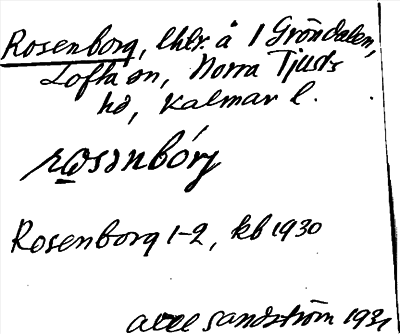 Rosenborg, lhtr. å 1 Gröndalen,
Lofta sn, Norra Tjusts
hd, Kalmar l.
rosənbórj
Rosenborg 1-2, kb 1930
Axel Sandström 1931